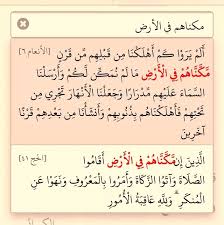 مكناهم في الأرض
أَلَمْ يَرَوْا كَمْ أَهْلَكْنَا مِن قَبْلِهِم مِّن قَرْنٍ [الأنعام ٦]
مَّكَّنَّاهُمْ فِي الْأَرْضِ مَا لَمْ نُمَكِّن لَّكُمْ وَأَرْسَلْنَا
السَّمَاءَ عَلَيْهِم مِّدْرَارًا وَجَعَلْنَا الْأَنْهَارَ تَجْرِي مِن
تَحْتِهِمْ فَأَهْلَكْنَاهُم بِذُنُوبِهِمْ وَأَنشَأْنَا مِن بَعْدِهِمْ قَرْنًا
آخَرِينَ
الَّذِينَ إِن مَّكَّنَّاهُمْ فِي الْأَرْضِ أَقَامُوا [الحج ٤١]
الصَّلَاةَ وَآتَوُا الزَّكَاةَ وَأَمَرُوا بِالْمَعْرُوفِ وَنَهَوْا عَنِ
الْمُنكَرِ ۗ وَلِلَّهِ عَاقِبَةُ الْأُمُورِ